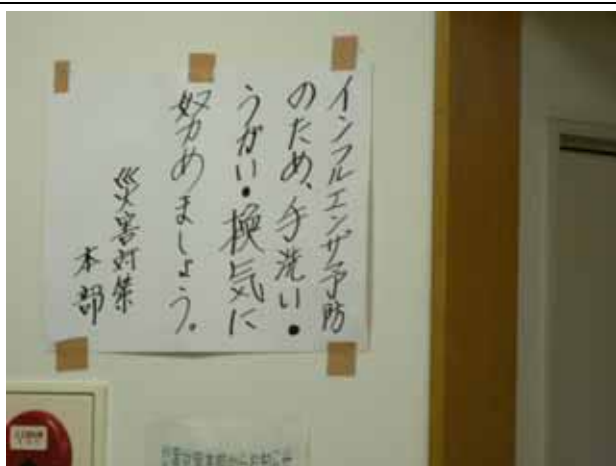 インフルエンザ予防
のため、手洗い・
うがい・換気に
努力めましょう。
災害対策
本部